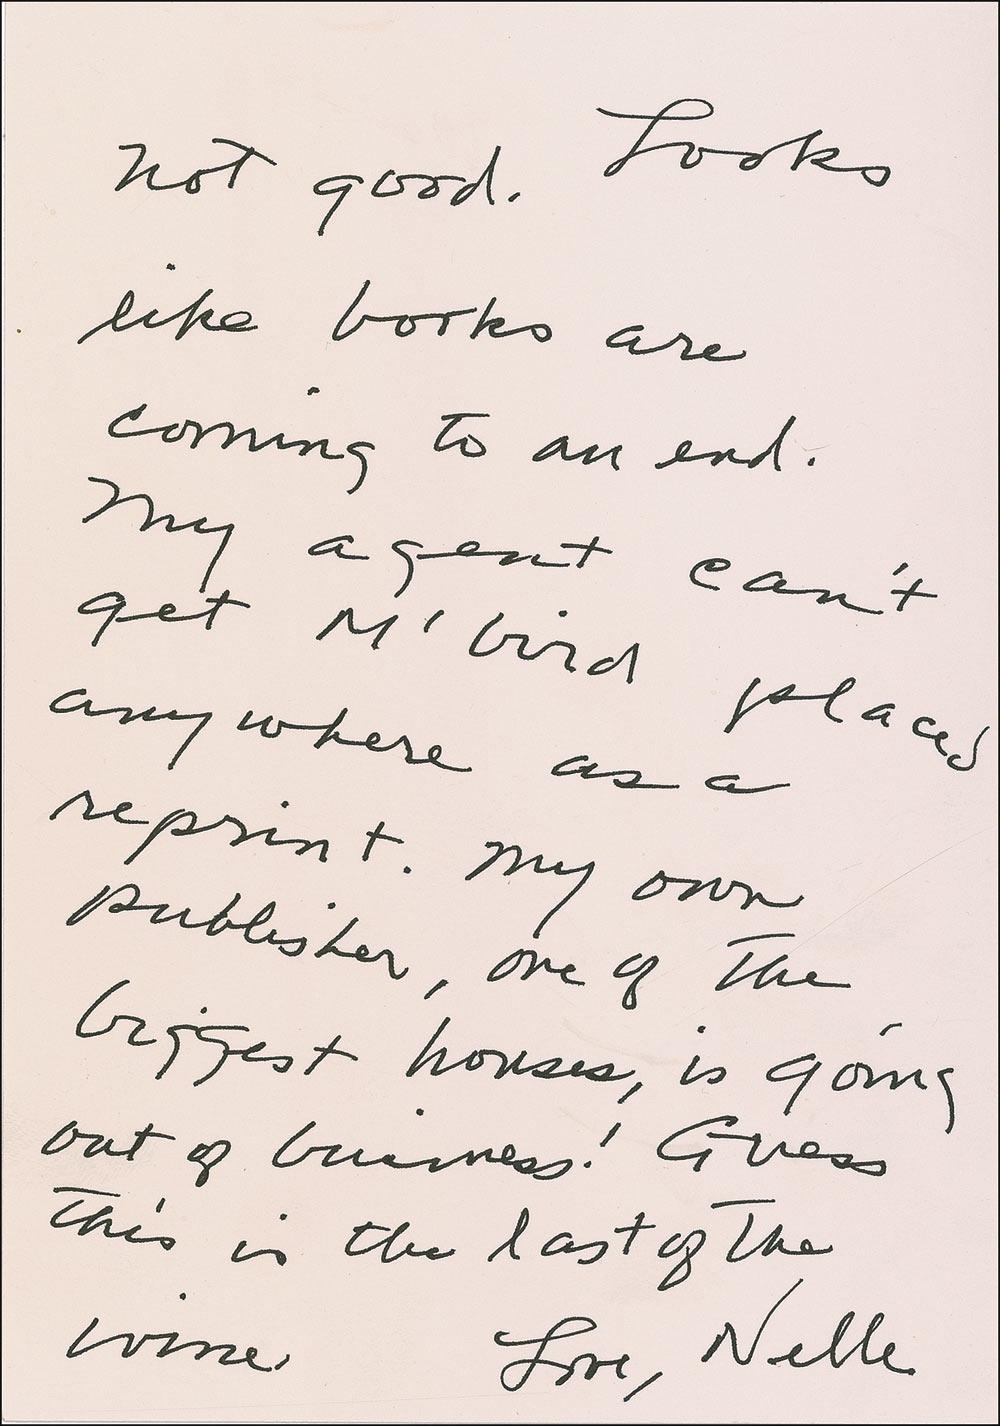 Not good. Looks
like books are
coming to an end.
My agent can't
get M'bird placed
anywhere as a
reprint. My own
publisher, one of the
biggest houses, is going
out of business! Guess
this is the last of the
wine. Love, Nelle